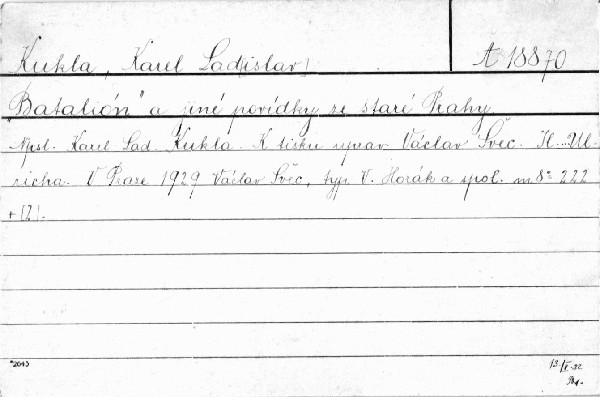 Kukla, Karel Lad[islav] A 18870
„Batalión" a jiné povídky ze staré Prahy.
Npsl. Karel Lad. Kukla. K tisku uprav. Václav Švec. Il. Ul-
richa. V Praze 1929 Václav Švec, typ. V. Horák a spol. m 8° 222
+ [2].
*2043